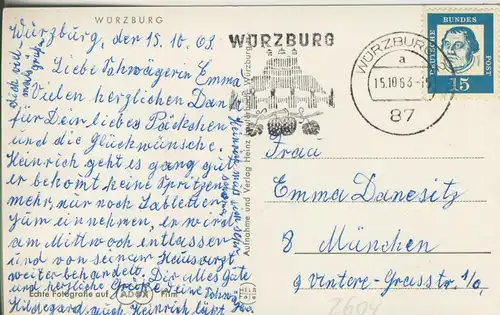 WÜRZBURG
Würzburg, den 15.10.63.
Liebe Schwägerin Emma
Vielen herzlichen Dank
für Dein liebes Päckchen
und die Glückwünsche.
Heinrich geht es ganz gut
er bekomt keine Spritzen
mehr, nur noch Tabletten
zum einnehmen, er wird
am Mittwoch entlassen
und von seinem Hausarzt
weiter behandelt. Dir alles Gute
und herzliche Grüße Deine Schwä.
Hildegard, auch Heinrich läßt
Echte Fotografie auf ADOX Film
Aufnahme und Verlag Heinz
Würzburg
WÜRZBURG
WÜRZBURG
a
15.10.63
87
DEUTSCHE BUNDESPOST
15
Frau
Emma Danesitz
8 München
9
2604